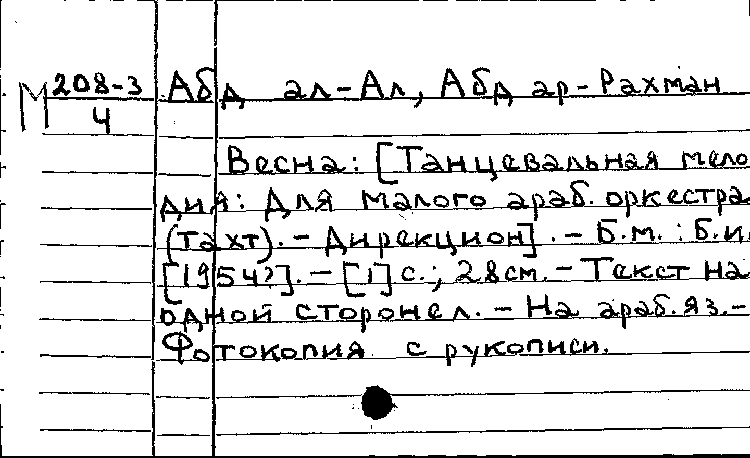 М 208-3 Абд ал-Ал, Абд ар-Рахман
4
Весна: [Танцевальная мело
дия: Для малого араб. оркестра
(тахт). - Дирекцион]. - Б.м. : Б.и
[1954?]. - [1] с.; 28 см. - Текст на
одной сторонел. - На араб. яз. -
Фотокопия с рукописи.